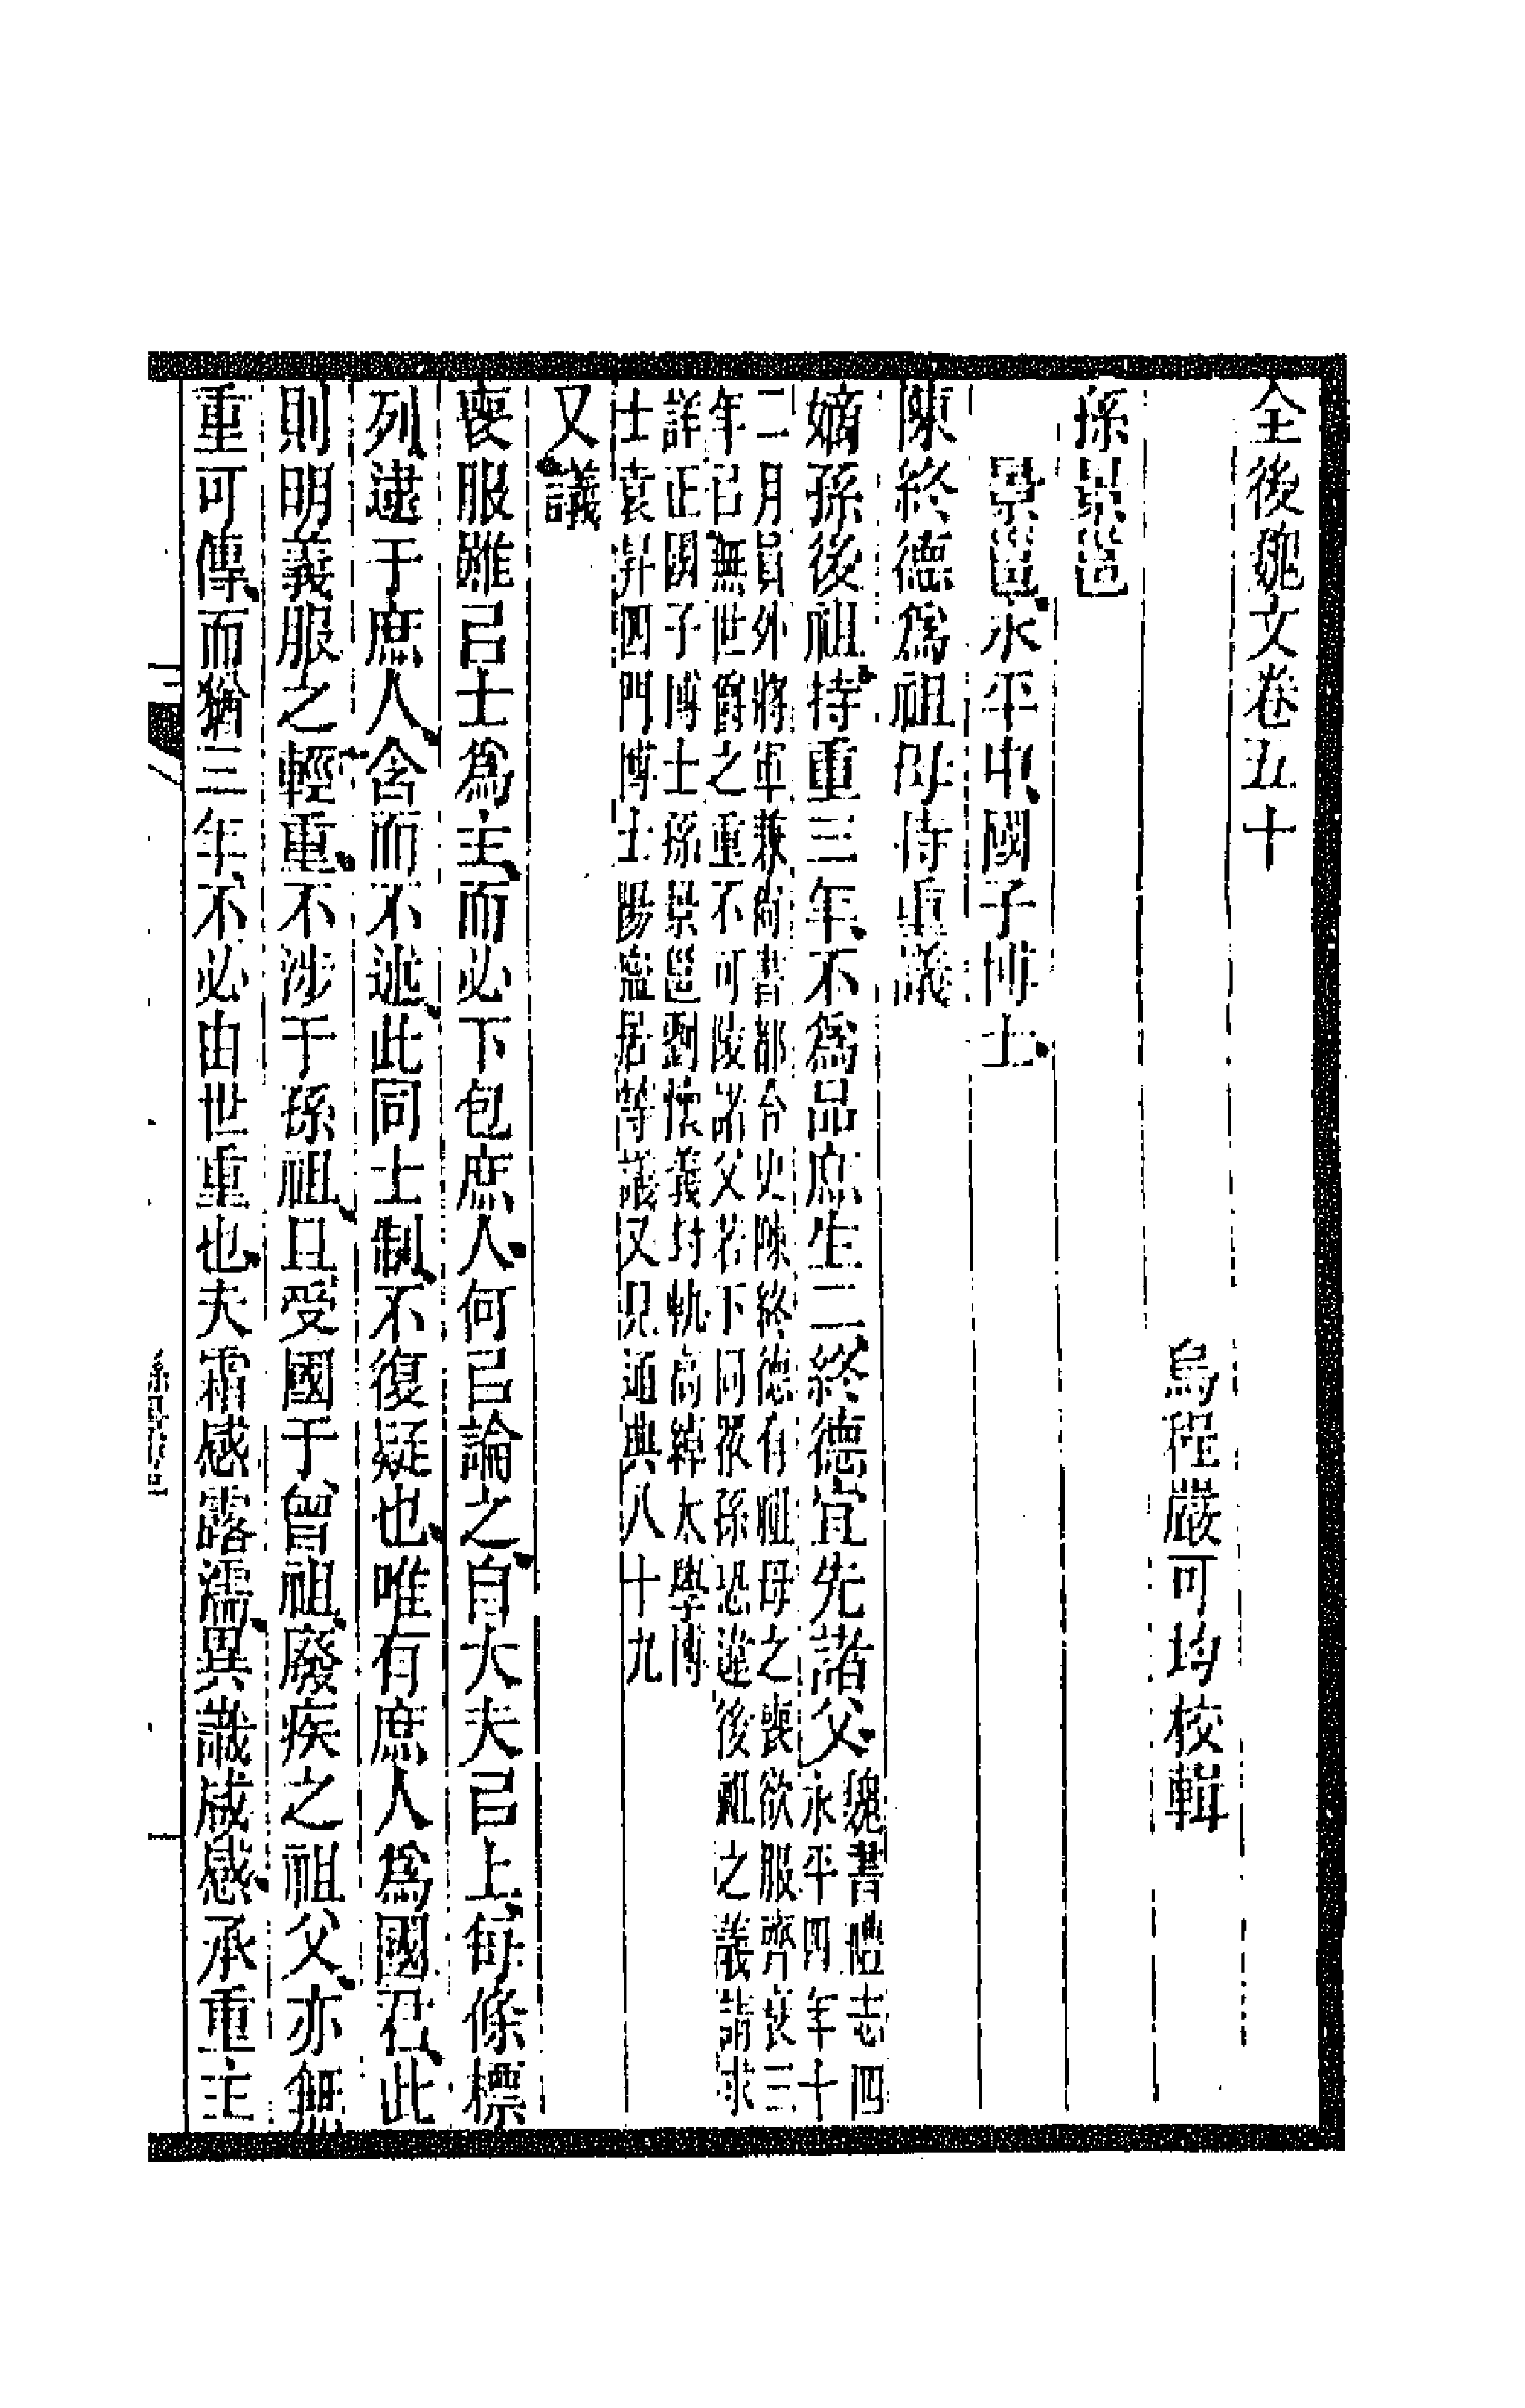 全後魏文卷五十
烏程嚴可均校輯
孫景邕
景邕永平中國子博士
陳終德爲祖母持重議
嫡孫後祖持重三年不爲品庶生二終德宜先諸父魏書禮志四永平四年十
二月員外將軍兼尚書都令史陳終德有祖母之喪欲服齊衰三
年㠯無世爵之重不可陵諸父若下同衆孫恐違後祖之義請求
詳正國子博士孫景邕劉懷義封軌高綽太學博
士袁昇四門博士陽寧居等議又見通典八十九
又議
喪服雖㠯士爲主而必下包庶人何㠯論之自大夫㠯上每條標
列逮于庶人含而不述此同士制不復疑也唯有庶人爲國君此
則明義服之輕重不涉于孫祖且受國于曾祖廢疾之祖父亦無
重可傳而猶三年不必由世重也夫霜感露濡異識咸感承重主